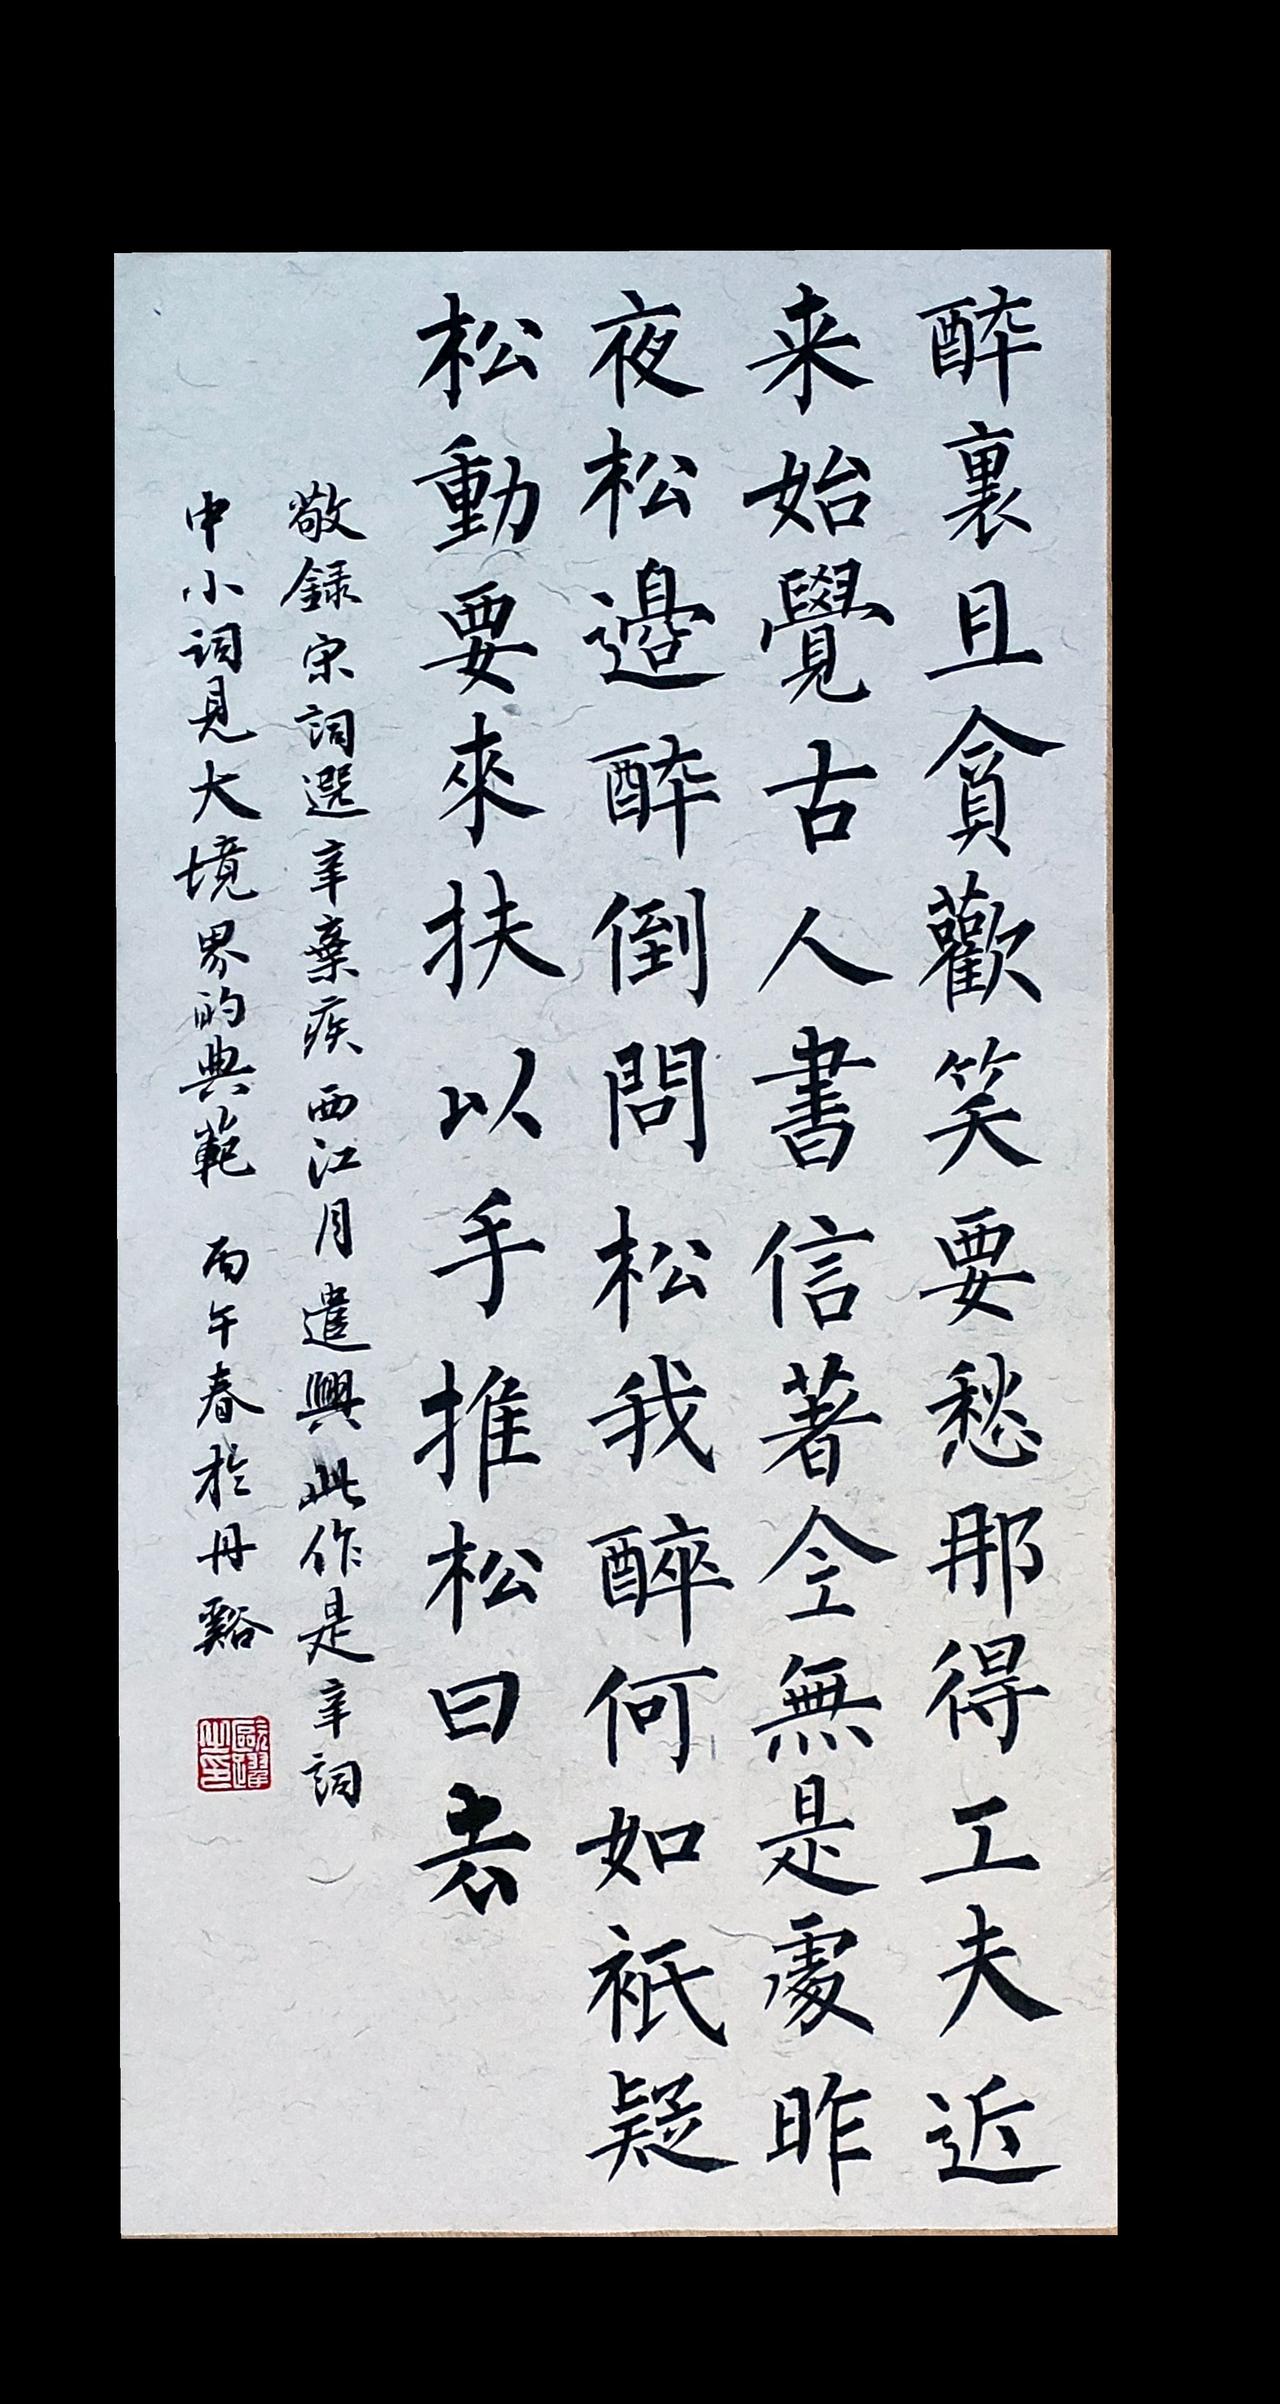 醉裏且貪歡笑要愁那得工夫近
来始覺古人書信著全無是處昨
夜松邊醉倒問松我醉何如衹疑
松動要來扶以手推松曰去
敬録宋詞選辛棄疾西江月遣興此作是辛詞
中小詞見大境界的典範 丙午春於丹谿
歐躍之印